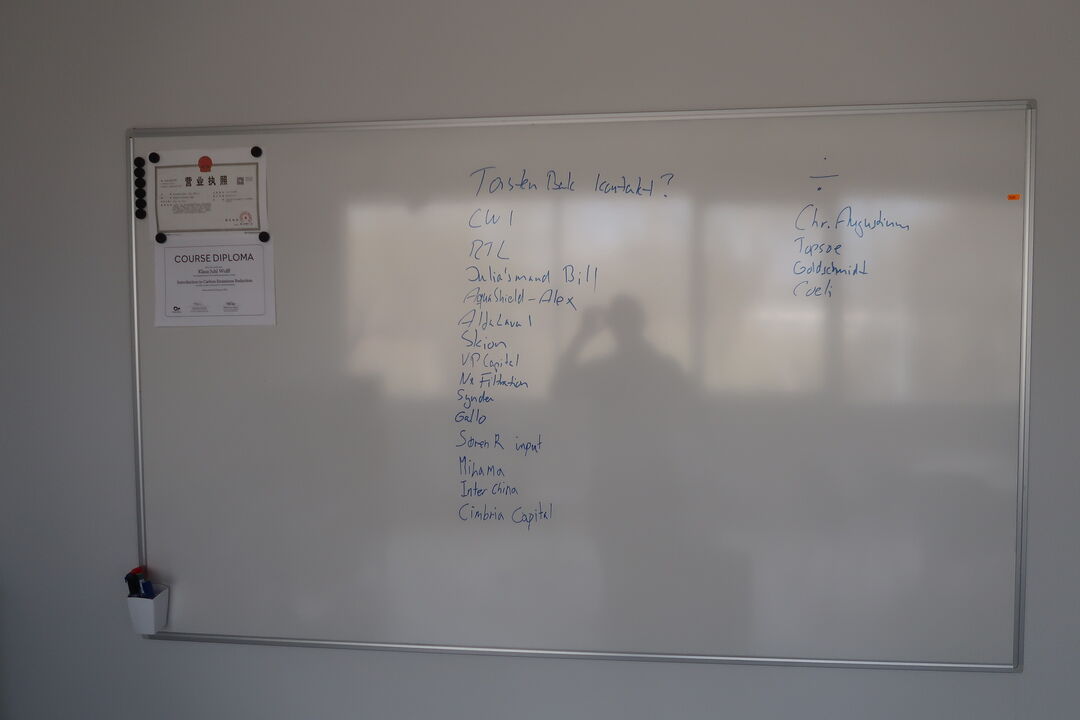 营业执照
COURSE DIPLOMA
Klaus Juhl Wulff
Introduction to Carbon Emissions Reduction
Torsten Bak kontakt?
CW1
RTL
Julia's mand Bill
AquaShield - Alex
Alfa Laval
Skion
VP Capital
Nx Filtration
Synder
Gallo
Søren R input
Mihama
Inter China
Cimbria Capital
÷
Chr. Augustinus
Topsoe
Goldschmidt
Coeli